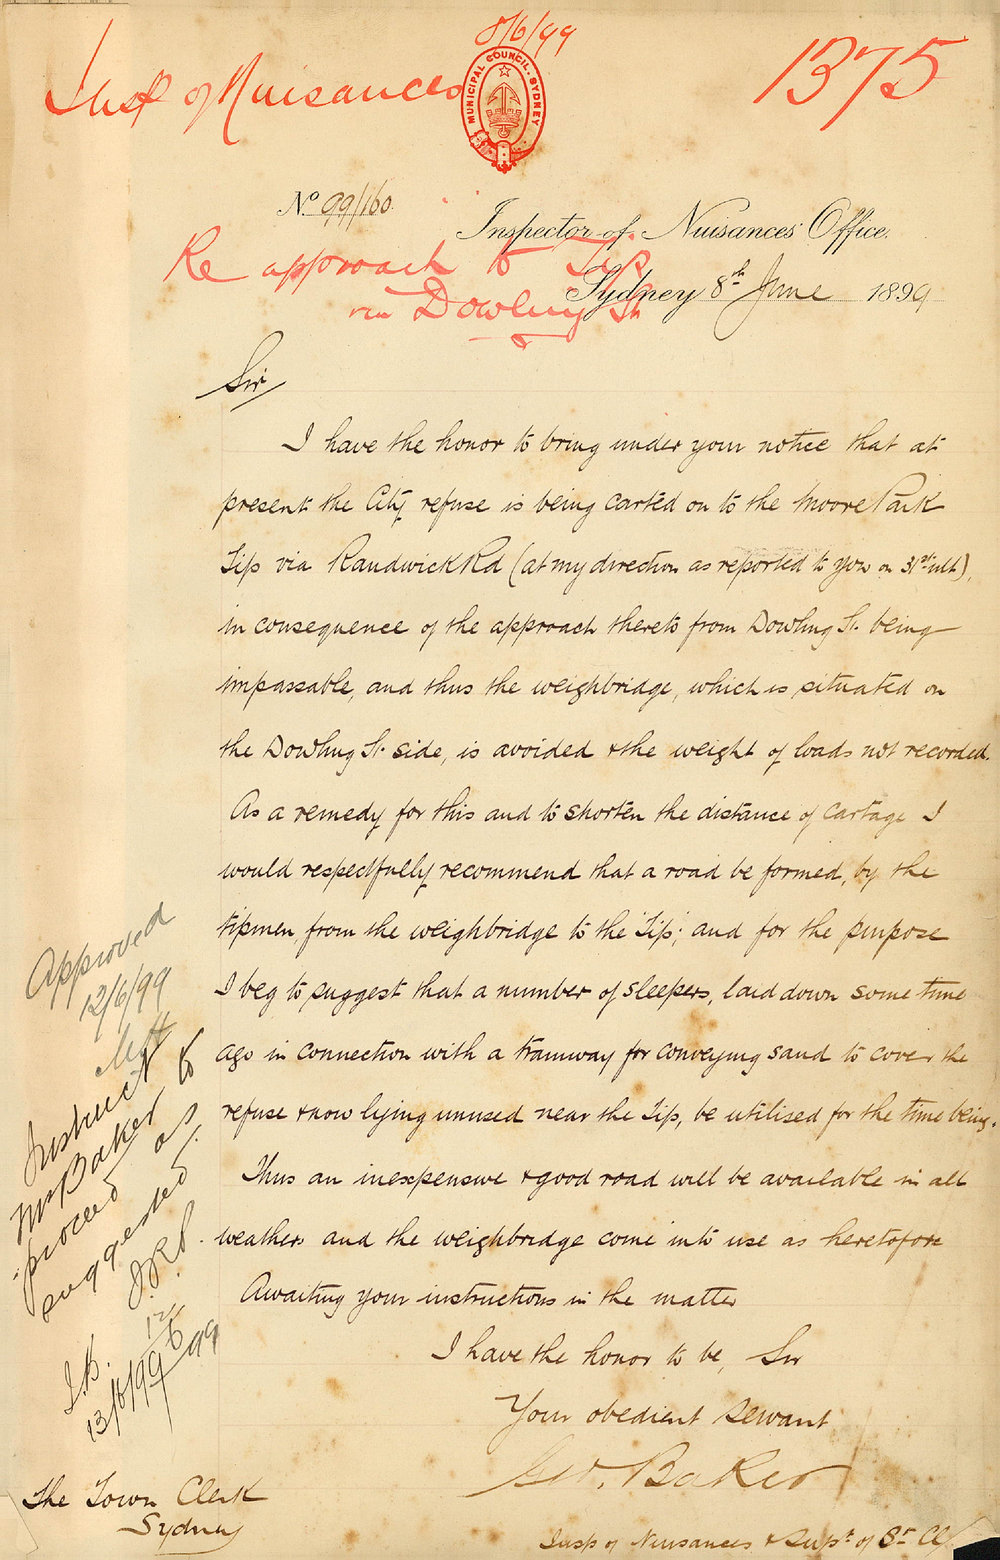 8/6/99
Insp of Nuisances
MUNICIPAL COUNCIL. SYDNEY
1375
No 99/160.
Inspector of Nuisances' Office,
Re approach to Tip
via Dowling St
Sydney 8th June 1899
Sir
I have the honor to bring under your notice that at
present the City refuse is being carted on to the Moore Park
Tip via Randwick Rd (at my direction as reported to you on 31st ult),
in consequence of the approach thereto from Dowling St. being
impassable, and thus the weighbridge, which is situated on
the Dowling St. side, is avoided & the weight of loads not recorded.
As a remedy for this and to shorten the distance of cartage I
would respectfully recommend that a road be formed, by the
tipmen, from the weighbridge to the Tip; and for the purpose
I beg to suggest that a number of sleepers, laid down some time
ago in connection with a tramway for conveying sand to cover the
refuse & now lying unused near the Tip, be utilised for the time being.
Thus an inexpensive & good road will be available in all
weathers and the weighbridge come into use as heretofore
Awaiting your instructions in the matter
I have the honor to be, Sir
Your obedient servant
Geo. Baker
Insp of Nuisances & Supt of St Cl
The Town Clerk
Sydney
Approved
12/6/99
Instruct
Mr Baker to
proceed as
suggested.
12/6/99
13/6/99